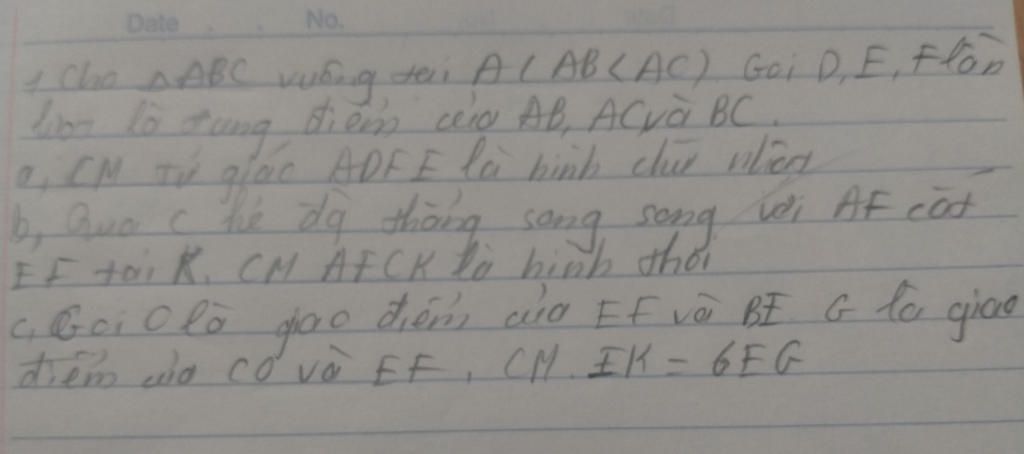 Date No.
1 Cho △ABC vuông tại A (AB<AC). Gọi D, E, F lần
lượt là trung điểm của AB, AC và BC.
a, CM tứ giác ADFE là hình chữ nhật
b, Qua C kẻ đg thẳng song song với AF cắt
EF tại K. CM AFCK là hình thoi
c, Gọi O là giao điểm của EF và BE. G là giao
điểm của CO và EF, CM. EK = 6EG